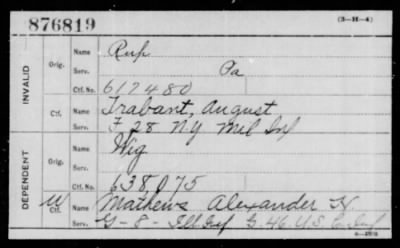 876819
(3-H-4)
INVALID
Orig.
Name
Serv. Pa
Ctf. No. 617480
Ctf.
Name Trabant, August
Serv. F 28 NY Mil Inf
DEPENDENT
Orig.
Name Wig
Serv.
Ctf. No. 638,075
W
Ctf.
Name Mathews Alexander H.
Serv. G-8- Ill Inf G-46 U.S.